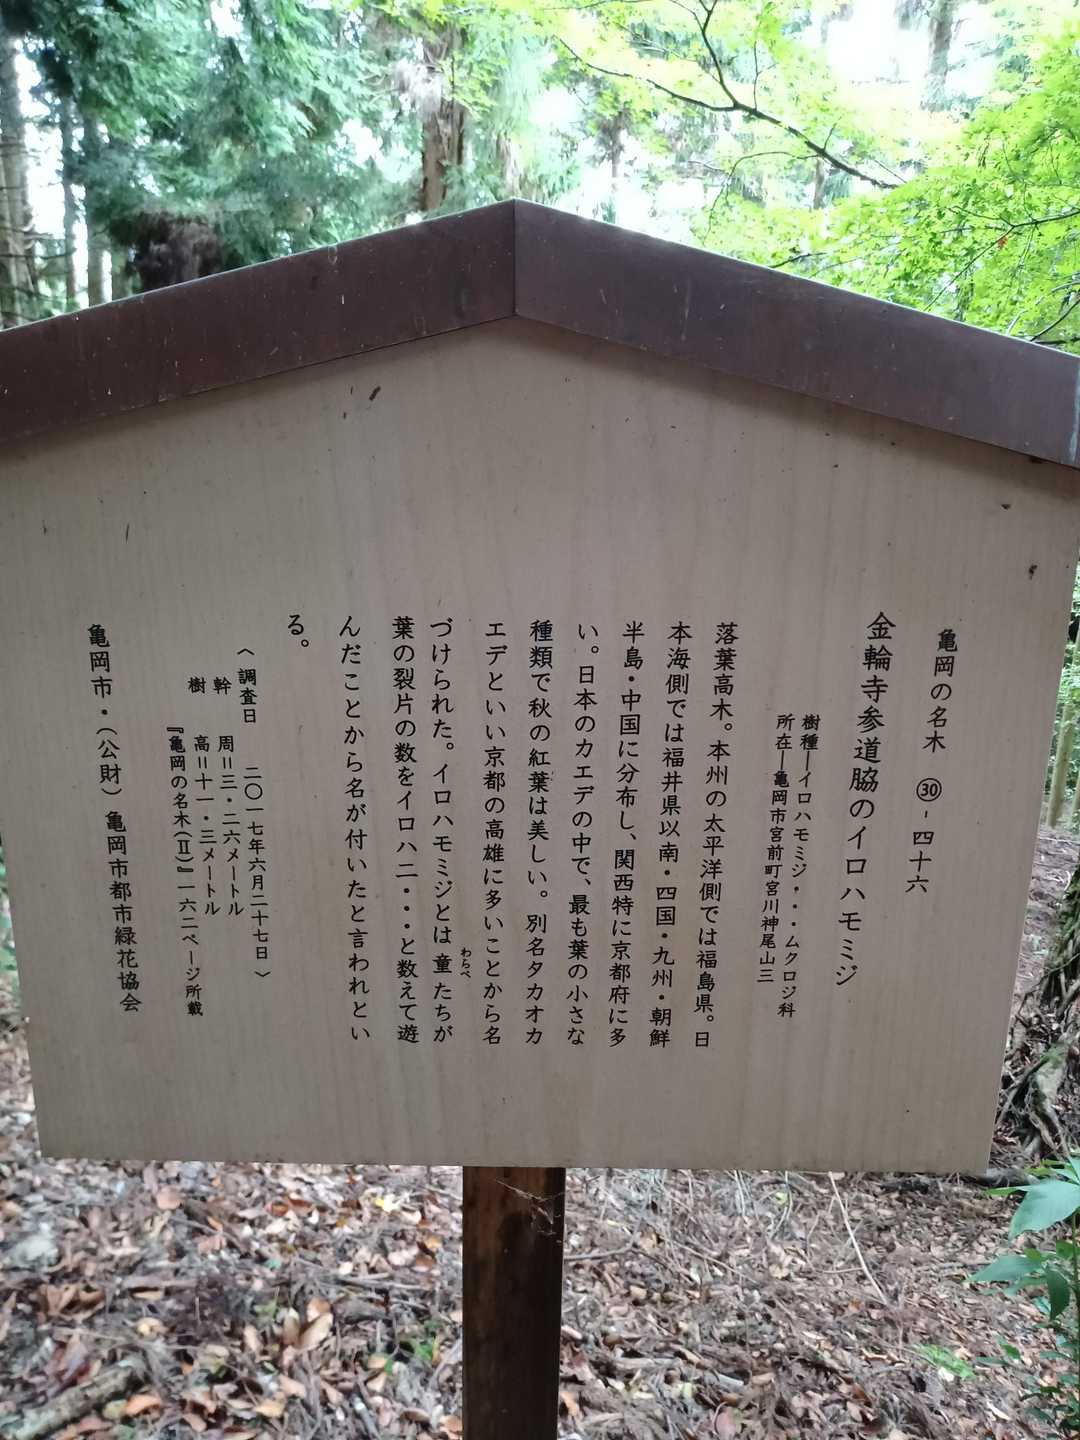 亀岡の名木　㉚-四十六
金輪寺参道脇のイロハモミジ
樹種―イロハモミジ・・・ムクロジ科
所在―亀岡市宮前町宮川神尾山三
落葉高木。本州の太平洋側では福島県。日
本海側では福井県以南・四国・九州・朝鮮
半島・中国に分布し、関西特に京都府に多
い。日本のカエデの中で、最も葉の小さな
種類で秋の紅葉は美しい。別名タカオカ
エデといい京都の高雄に多いことから名
づけられた。イロハモミジとは童たちが
わらべ
葉の裂片の数をイロハニ・・・と数えて遊
んだことから名が付いたと言われてい
る。
〈調査日　二〇一七年六月二十七日〉
幹　周＝三・二六メートル
樹　高＝十一・三メートル
『亀岡の名木(Ⅱ)』一六二ページ所載
亀岡市・(公財)亀岡市都市緑花協会